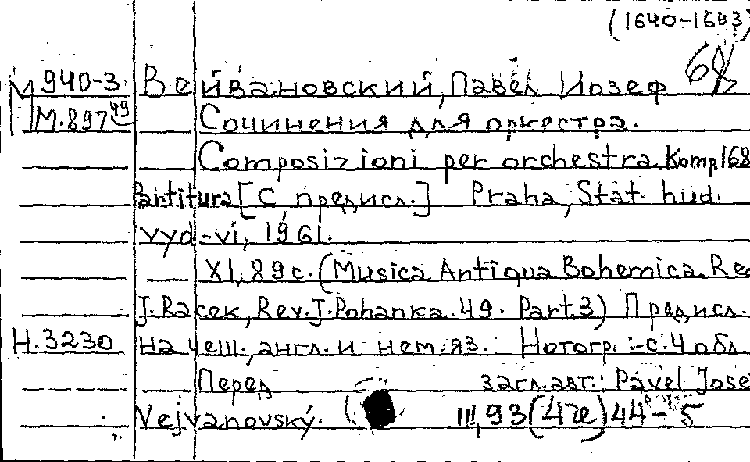 (1640-1693)
М 940-3 Вейвановский, Павел Иозеф 68
М.897 49 Сочинения для оркестра.
Composizioni per orchestra. Komp. 168
Partitura [С предисл.] Praha, Stát. hud.
vyd-ví, 1961.
XI, 89 с. (Musica Antiqua Bohemica. Red
J. Racek, Rev. J. Pohanka. 49. Part 3) Предисл.
Н.3230 на чеш., англ. и нем. яз. Нотогр.: -с. 4 обл
Перед загл. авт.: Pavel Jose
Vejvanovský. III, 93 (4че) 44-5